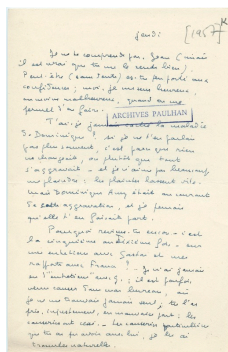 Jeudi
[1957]
Je ne te comprends pas, Jean (mais
il est vrai que tu me le rends bien)
Peut-être (sans doute) es-tu peu porté aux
confidences ; moi, je me sens heureux,
ou moins malheureux, quand on me
permet d'en faire.
ARCHIVES PAULHAN
T'ai-je jamais la maladie
de Dominique ? si je ne t'en parlais
pas plus souvent, c'est parce que rien
ne changeait, ou plutôt que tout
s'aggravait - et je n'aime pas beaucoup
me plaindre ; les plaintes lassent vite.
mais Dominique Aury était au courant
de cette aggravation, et je pensais
qu'elle t'en faisait part.
Pourquoi reviens-tu encore - c'est
la cinquième ou sixième fois - sur
mes entretiens avec Gaston et mes
rapports avec France ? Je n'ai jamais
eu d' avec G. ; il est parfois
venu causer dans mon bureau où
je ne me trouvais jamais seul ; tu l'as
pris, injustement, en mauvaise part : les
causeries ont cessé - Les causeries particulières
que tu as pu avoir avec lui, je les ai
trouvées naturelles.